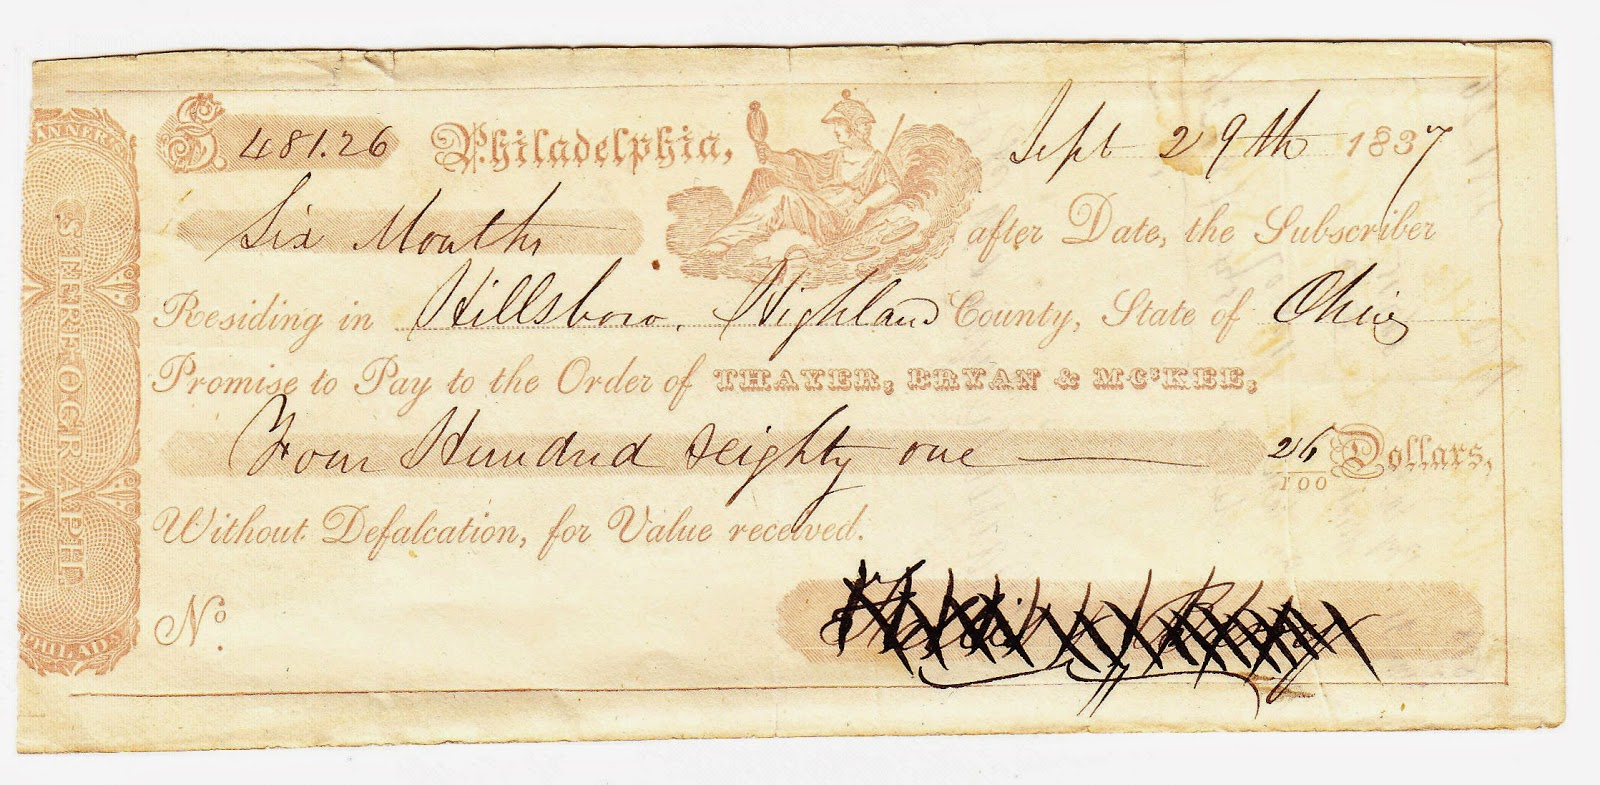 $. 481.26 Philadelphia, Sept 29th 1837
Six Months after Date, the Subscriber
Residing in Hillsboro, Highland County, State of Ohio
Promise to Pay to the Order of THAYER, BRYAN & MCKEE,
Four Hundred & eighty one 26/100 Dollars,
Without Defalcation, for Value received.
No.
STEREOGRAPH.
PHILADA